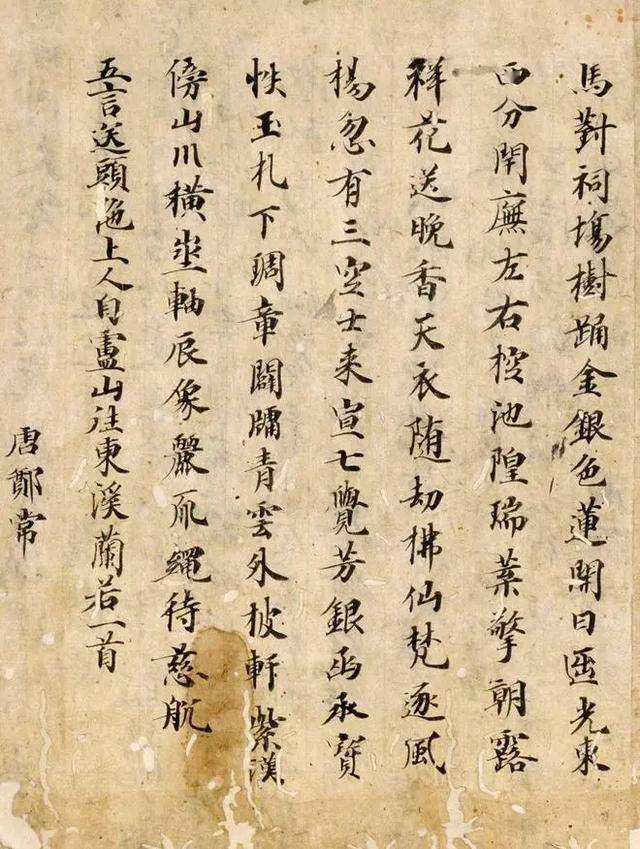 馬對祠塲樹踊金銀色蓮開日匝光東
西分閈廡左右控池隍瑞葉擎朝露
祥花送晚香天衣随劫拂仙梵逐風
楊忽有三空士来宣七覺芳銀函承寳
帙玉札下琱章闢牖青雲外披軒紫漢
傍山川橫坐軸辰象麗縄待慈航
五言送頭陁上人自盧山往東溪蘭若一首
唐鄭常